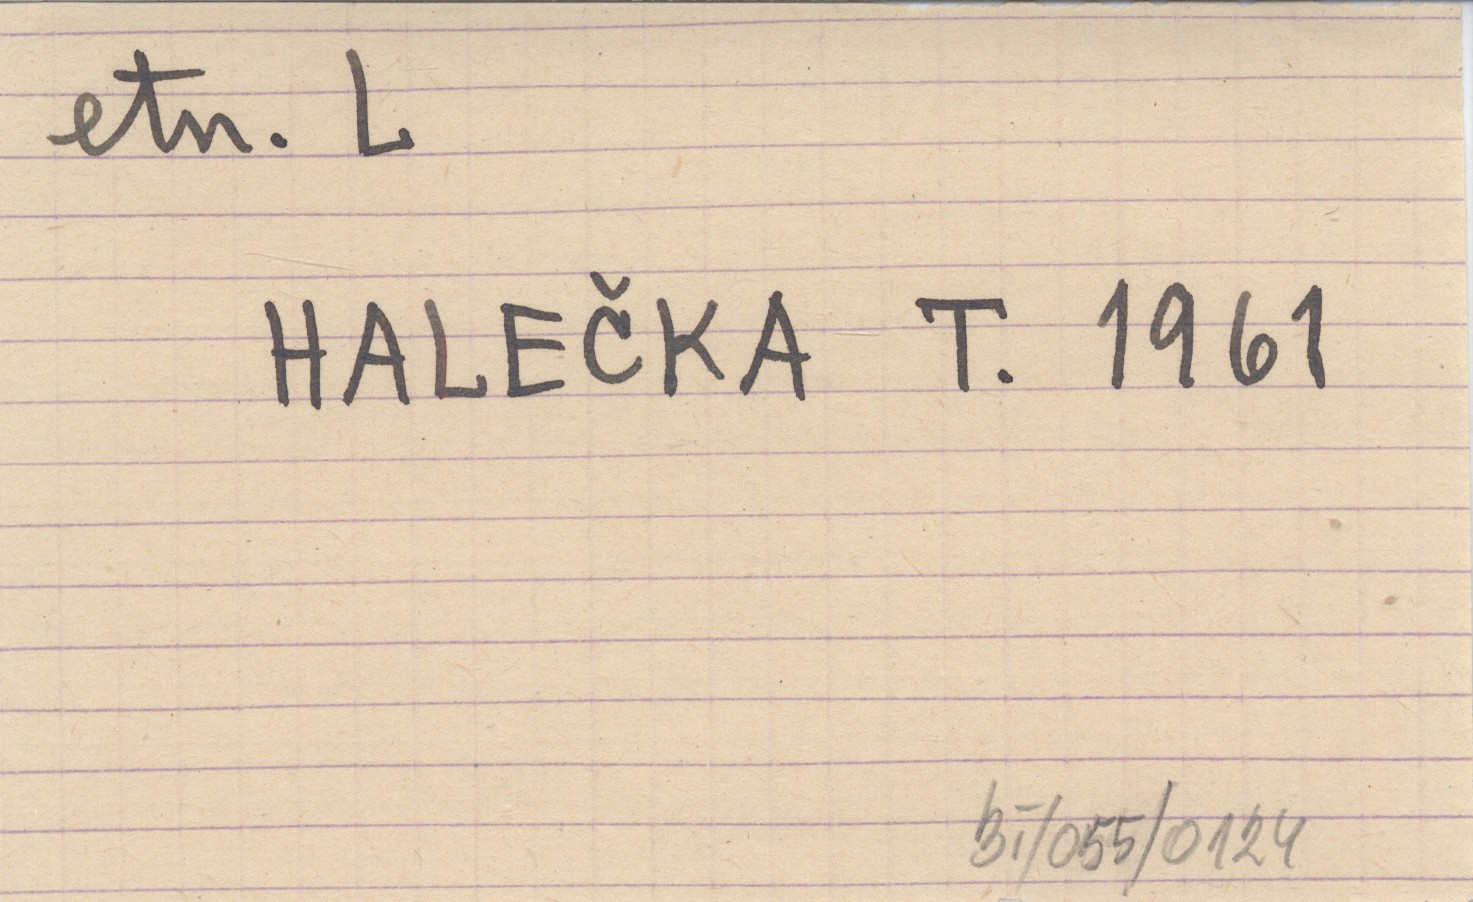 etn. L
HALEČKA T. 1961
BI/055/0124